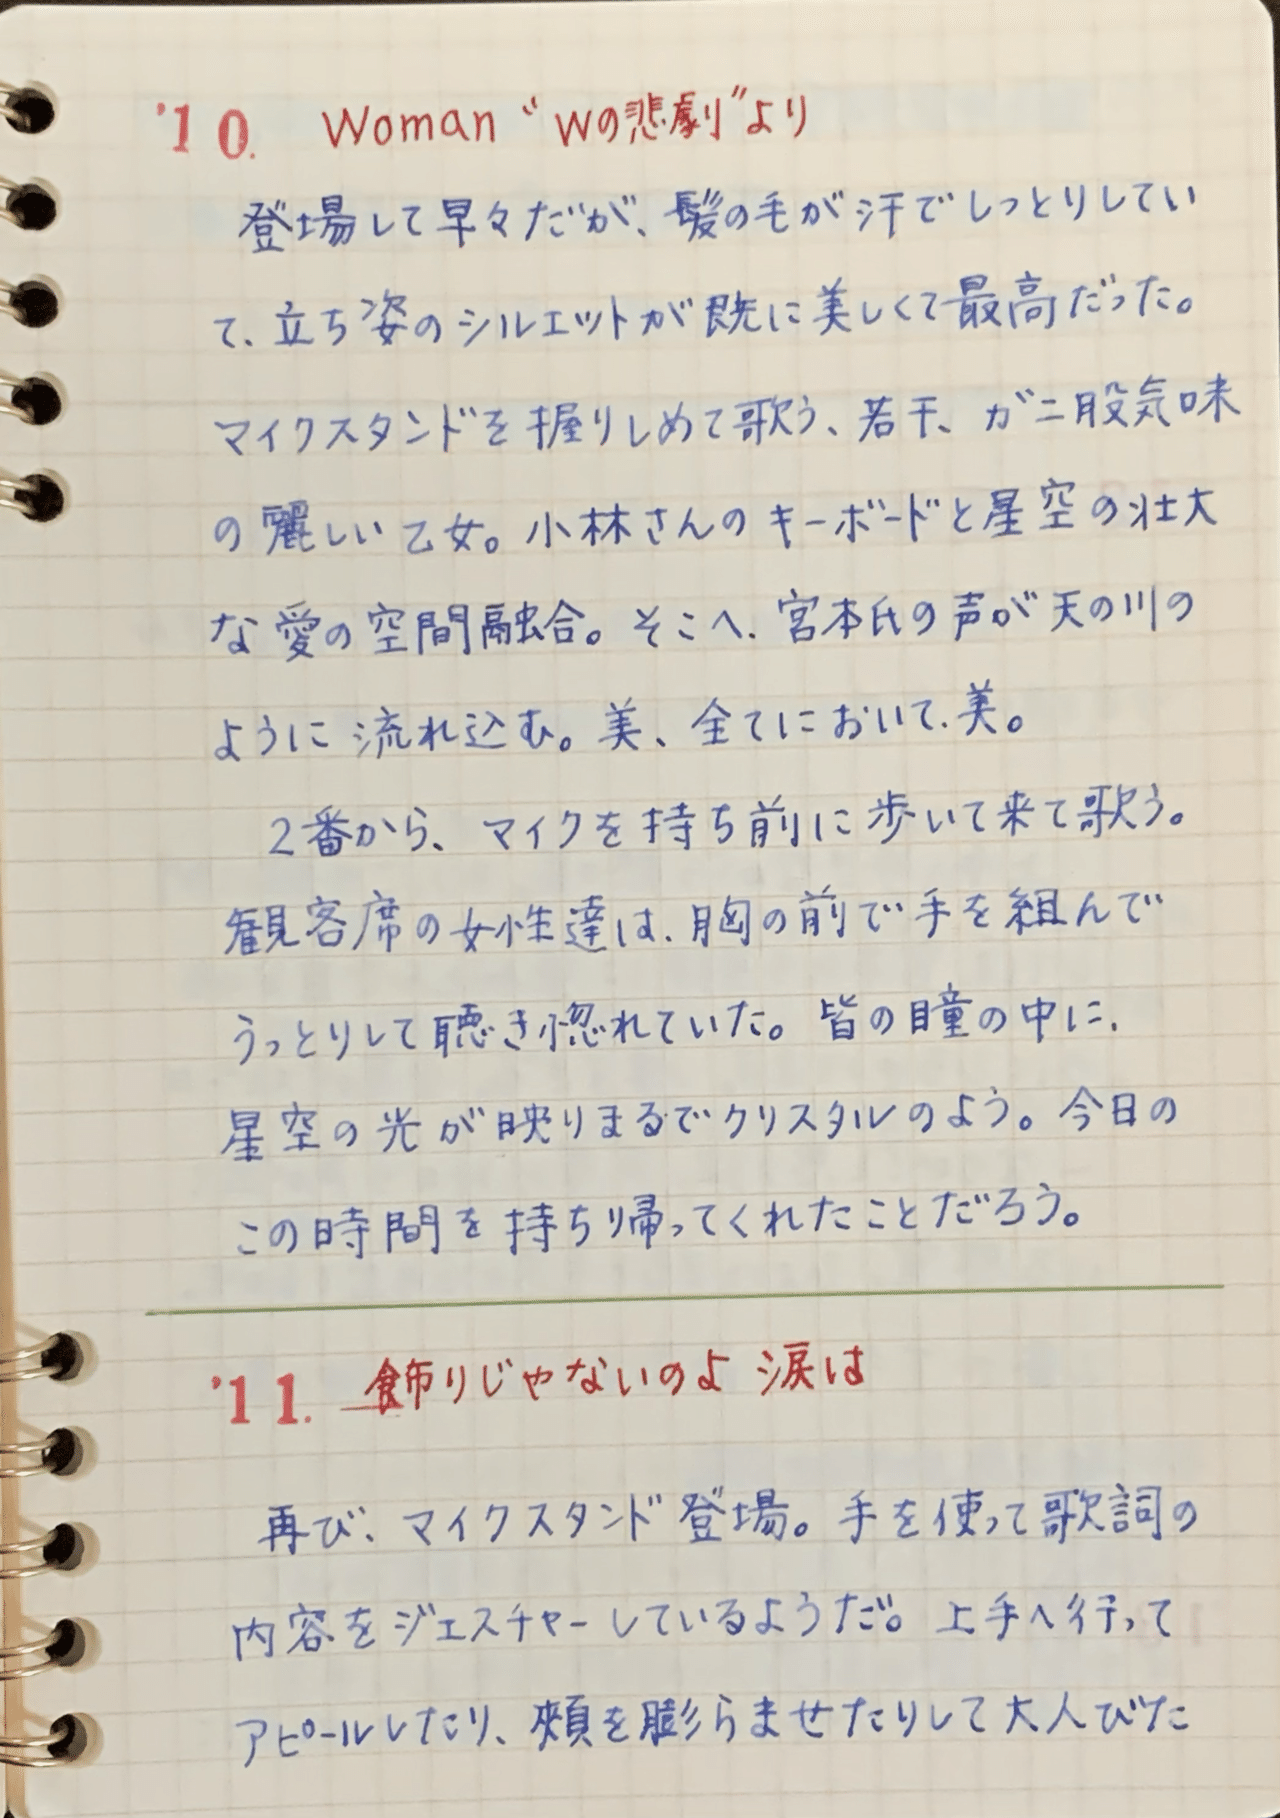 '10. Woman "Wの悲劇"より
登場して早々だが、髪の毛が汗でしっとりしてい
て、立ち姿のシルエットが既に美しくて最高だった。
マイクスタンドを握りしめて歌う、若干、ガニ股気味
の麗しい乙女。小林さんのキーボードと星空の壮大
な愛の空間融合。そこへ、宮本氏の声が天の川の
ように流れ込む。美、全てにおいて、美。
2番から、マイクを持ち前に歩いて来て歌う。
観客席の女性達は、胸の前で手を組んで
うっとりして聴き惚れていた。皆の瞳の中に、
星空の光が映りまるでクリスタルのよう。今日の
この時間を持ち帰ってくれたことだろう。
'11. 飾りじゃないのよ 涙は
再び、マイクスタンド登場。手を使って歌詞の
内容をジェスチャーしているようだ。上手へ行って
アピールしたり、頬を膨らませたりして大人びた